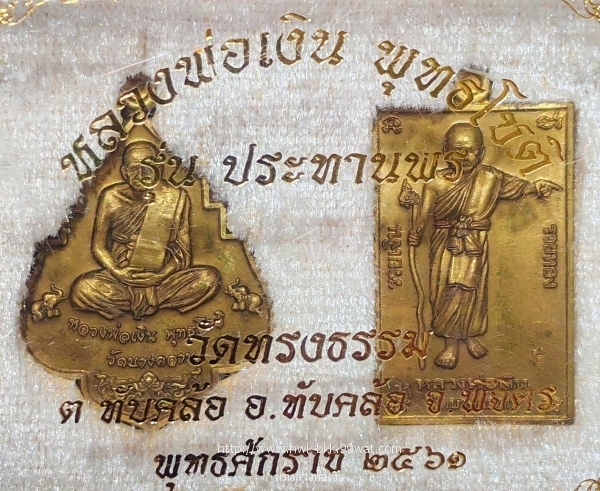 หลวงพ่อเงิน พุทธโชติ
รุ่น ประทานพร
รวยเงิน
รวยทอง
หลวงพ่อเงิน พุทธโชติ
วัดทรงธรรม
ต ทับคล้อ อ.ทับคล้อ จ.พิจิตร
พุทธศักราช ๒๕๖๑